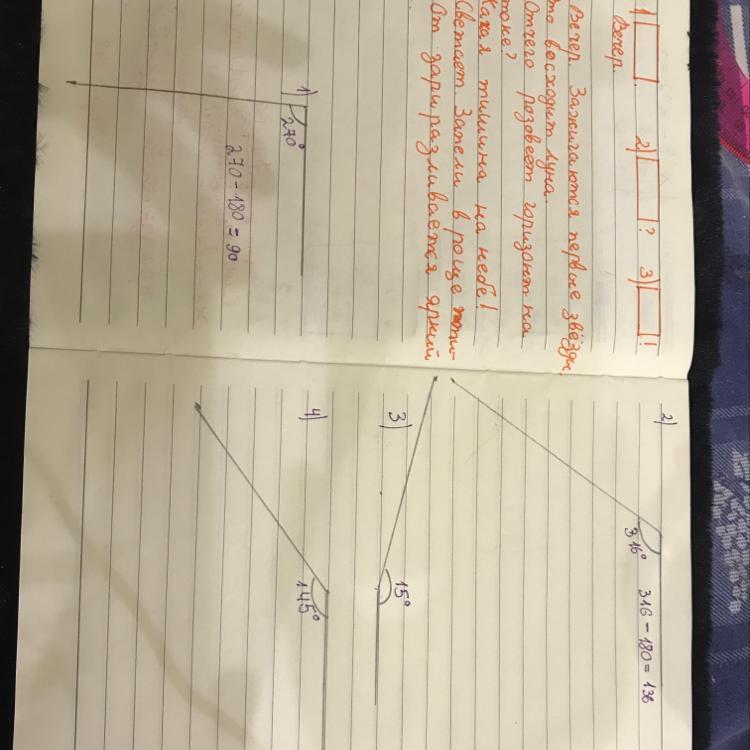 1) . 2) ? 3) !
Вечер.
Вечер. Зажигаются первые звёзды.
то восходит луна.
Отчего розовеет горизонт на
токе?
Какая тишина на небе!
Светает. Запели в роще
От зари разливается яркий
1)
270°
270 - 180 = 90
2)
316° 316 - 180 = 136
3)
15°
4)
145°